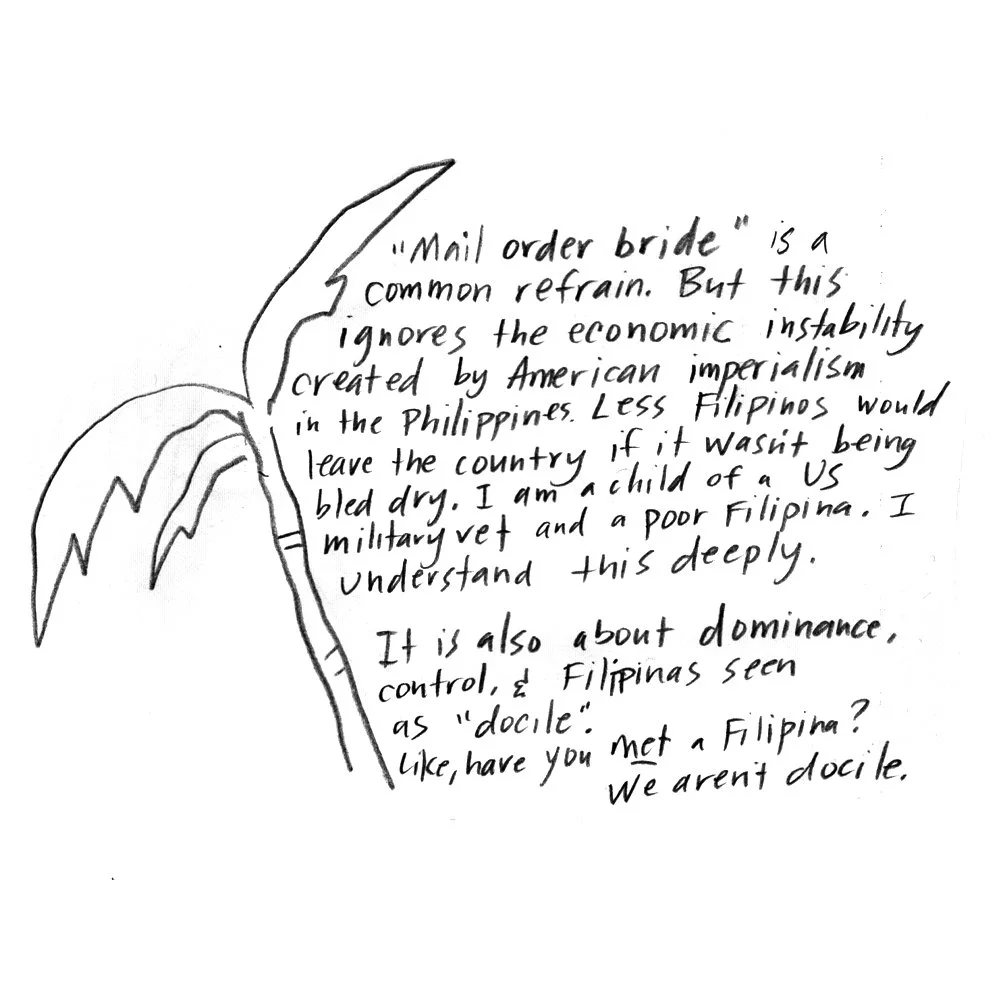 "Mail order bride" is a
common refrain. But this
ignores the economic instability
created by American imperialism
in the Philippines. Less Filipinos would
leave the country if it wasn't being
bled dry. I am a child of a US
military vet and a poor Filipina. I
understand this deeply.
It is also about dominance,
control, & Filipinas seen
as "docile".
Like, have you met a Filipina?
We aren't docile.